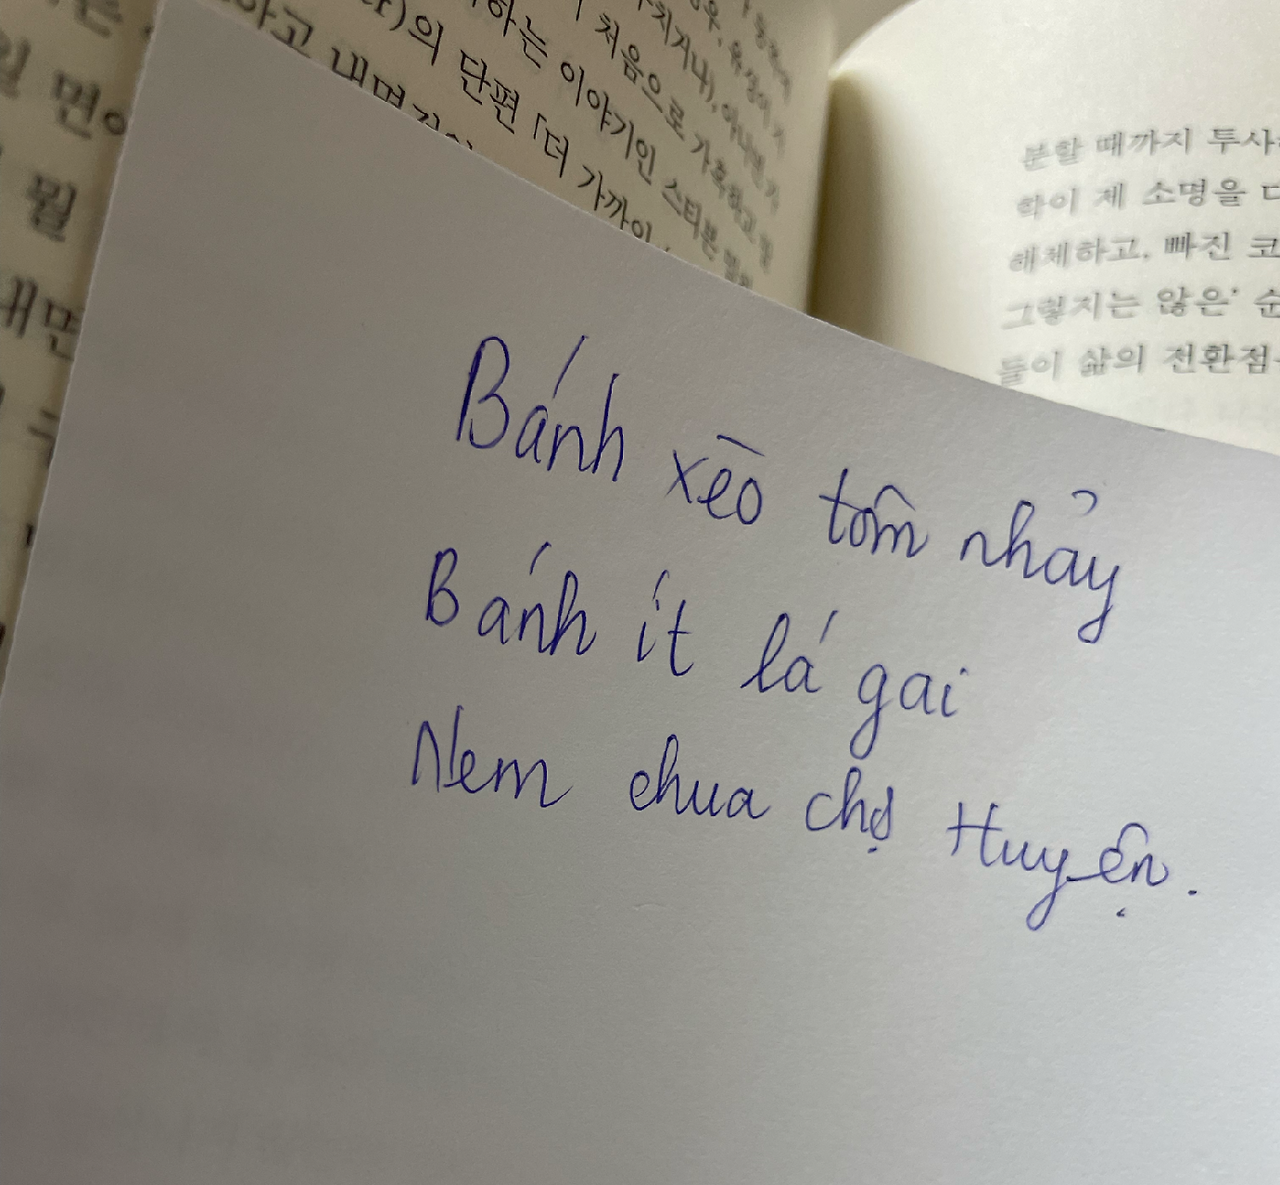 일 면이
뭘
내면
하고 내면
의 단편 「더 가까이
하는 이야기인 스티븐
처음으로 가혹하고
분할 때까지 투사
학이 제 소명을 다
해체하고, 빠진 코
그렇지는 않은' 순
들이 삶의 전환점
Bánh xèo tôm nhảy
Bánh ít lá gai
Nem chua chợ Huyện.